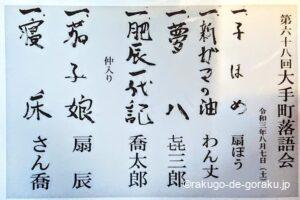 第六十八回 大手町落語会
令和三年八月七日(土)
一、子ほめ 扇ぽう
一、新ガマの油 わん丈
一、夢八 㐂三郎
一、肥辰一代記 喬太郎
仲入り
一、茄子娘 扇辰
一、寝床 さん喬
©rakugo-de-goraku.jp